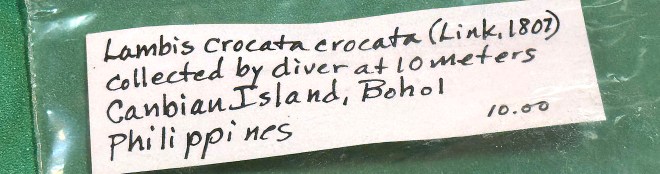 Lambis crocata crocata (Link, 1807)
collected by diver at 10 meters
Canbian Island, Bohol
Philippines
10.00